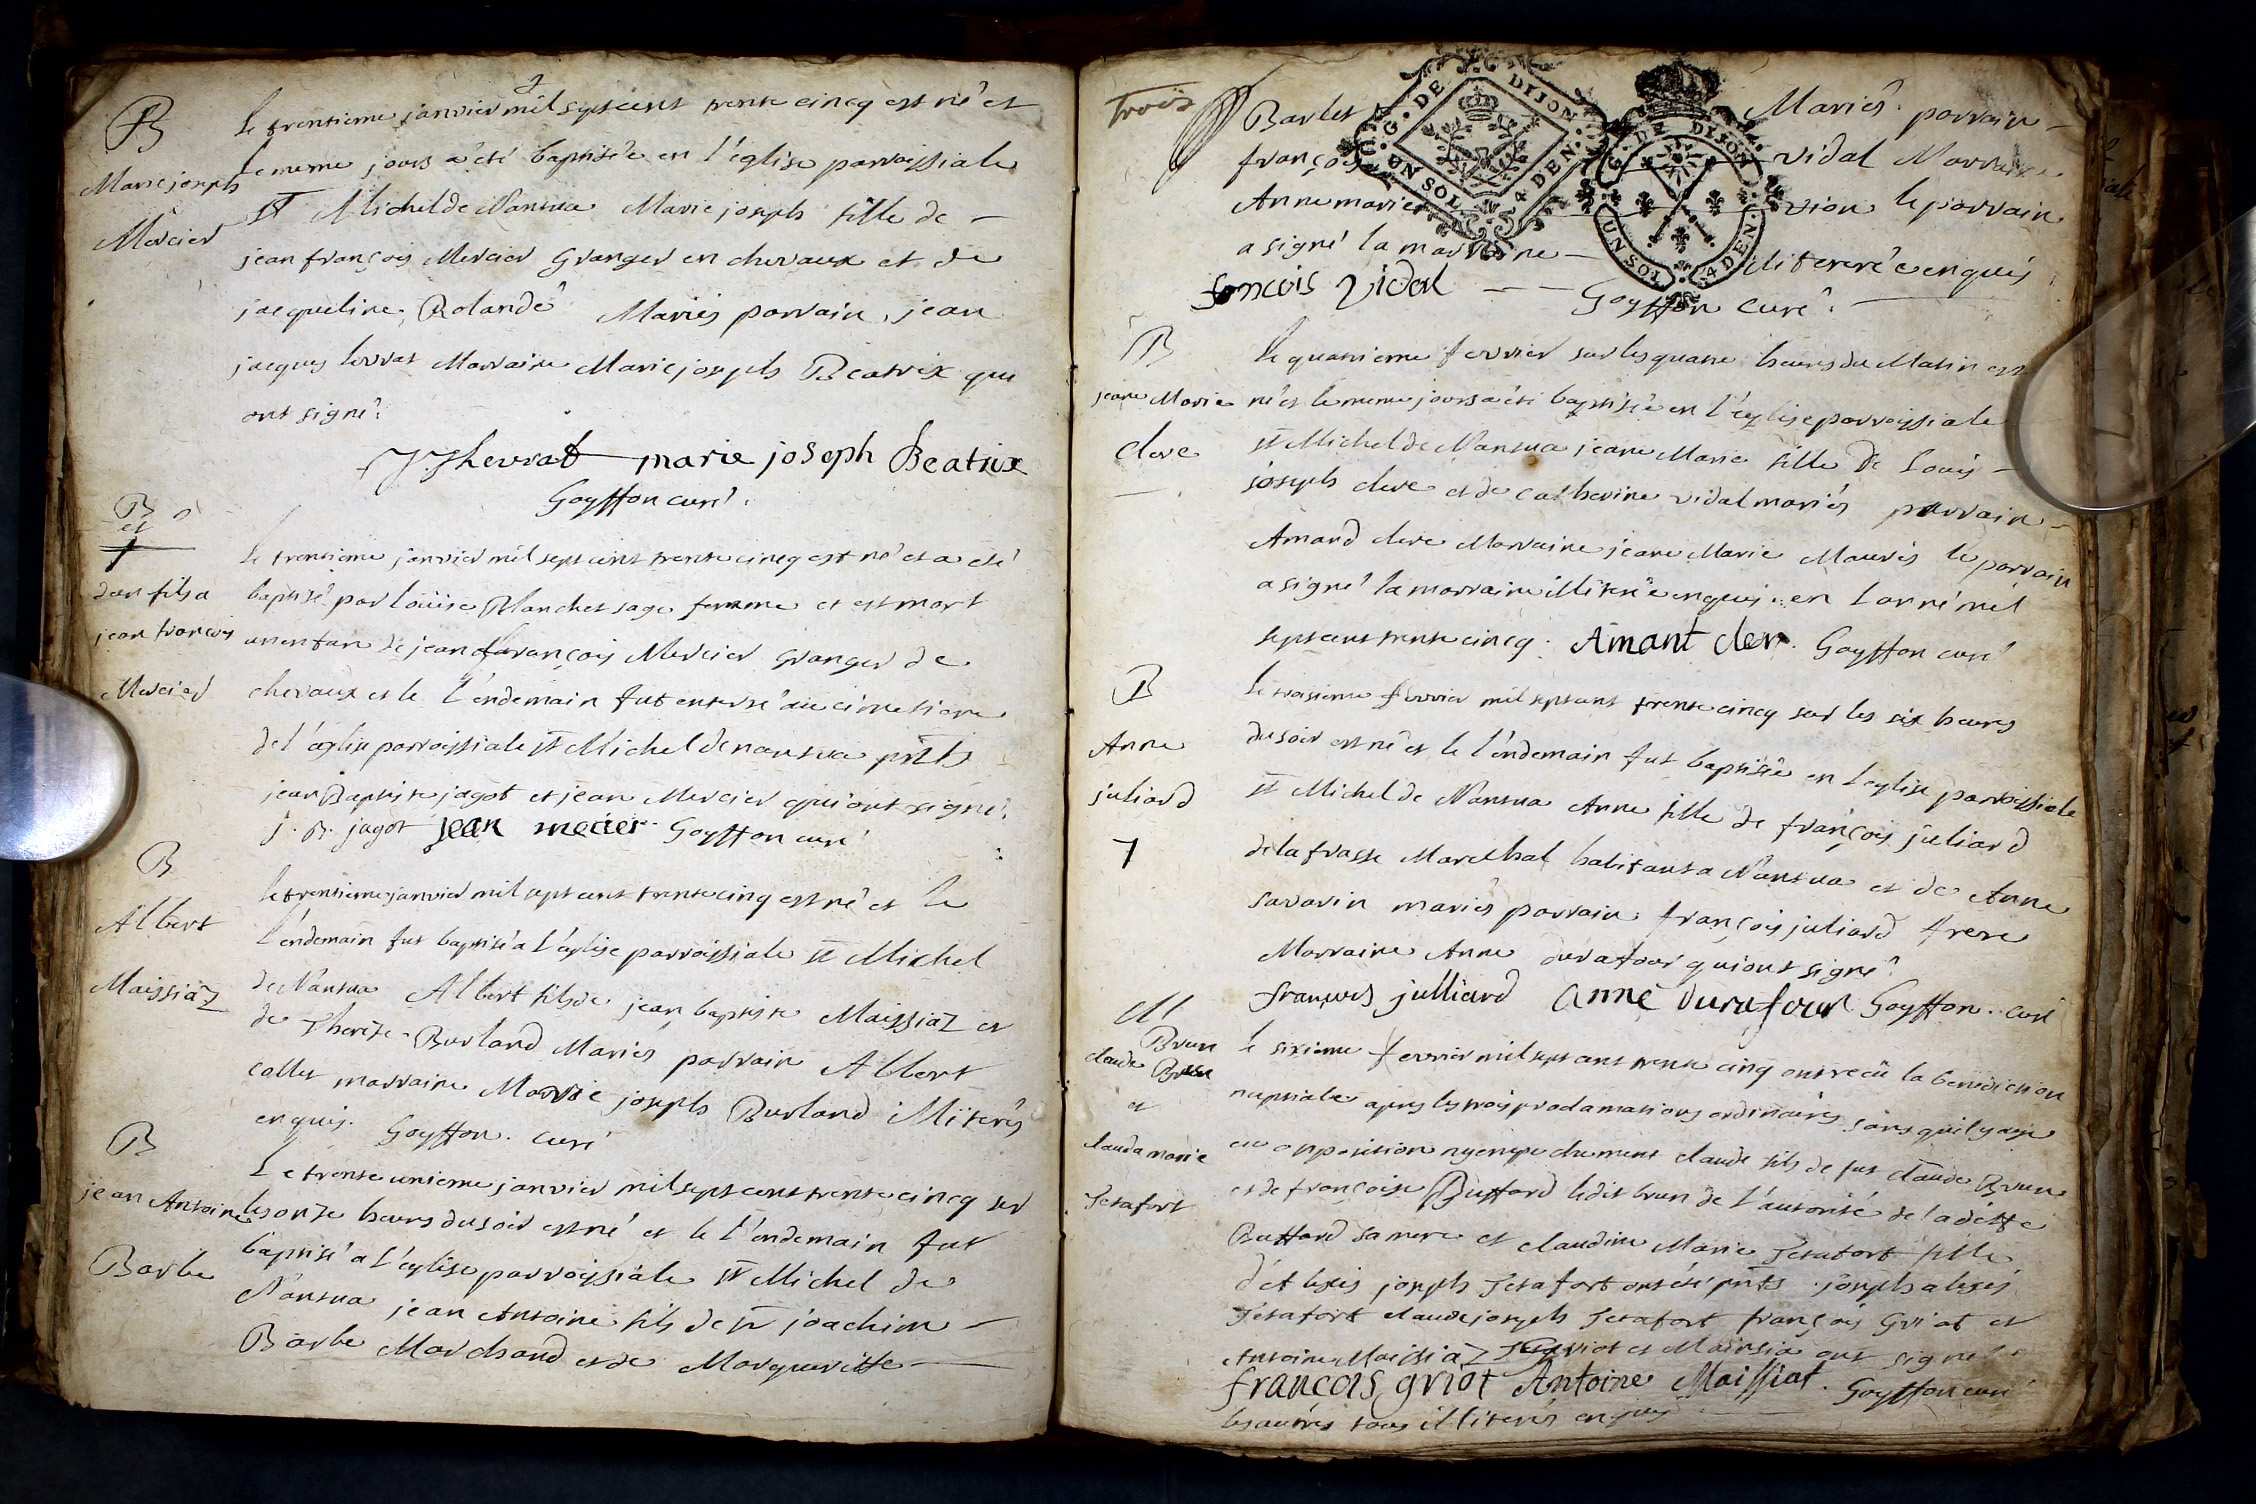 B
Marie joseph
Mercier
Le trentieme janvier mil sept cent trente cincq est né et
le meme jours a été baptisée en l'église parroissiale
St Michel de Nantua Marie joseph fille de
jean françois Mercier Granger en chevaux et de
jacqueline Rolande Mariés parrain jean
jacques levrat Marraine Marie joseph Beatrix qui
ont signé.
JJ levrat marie joseph Beatrix
Goyffon curé.
B
et
†
dun fils a
jean françois
Mercier
Le trentieme janvier mil sept cent trente cincq est né et a eté
baptisé par Loüise Blanchet sage femme et est mort
un enfan de jean françois Mercier granger de
chevaux et le l'endemain fut enterré au cimetiere
de l'eglise parroissiale St Michel de nantua pnts
jean Baptiste jagot et jean Mercier qui ont signé.
j. B. jagot jean mecier Goyffon curé
B
Albert
Maissiaz
le trentieme janvier mil sept cent trente cinq est né et le
l'endemain fut baptisé a l'église parroissiale St Michel
de Nantua Albert fils de jean baptiste Maissiaz et
de Therese Burland Mariés parrain Albert
collet marraine Marie joseph Burland illiterés
enquis. Goyffon. curé
B
jean Antoine
Barbe
Le trente unieme janvier mil sept cent trente cincq sur
les onze heures du soir est né et le l'endemain fut
baptisé a l'église parroissiale St Michel de
Nantua jean Antoine fils de sr joachim
Barbe Marchand et de Margueritte
trois
Barlet Mariés. parrain
françois vidal Marraine
Anne marie vion le parrain
a signé la marraine illiterée enquis
francois vidal Goyffon curé.
B
jeane Marie
clere
le quatrieme fevrier sur les quatre heures du Matin est
né et le meme jours a été baptisée en l'église parroissiale
St Michel de Nantua jeane Marie fille de Louis
joseph clere et de catherine vidal mariés parrain
Amand clere Marraine jeane Marie Mauris le parrain
a signé la marraine illiterée enquis en l'anné mil
sept cent trente cincq. Amant cler. Goyffon curé
B
Anne
juliard
†
le troisieme fevrier mil sept cent trente cincq sur les six heures
du soir est né et le l'endemain fut baptisée en l'eglise parroissiale
St Michel de Nantua Anne fille de françois juliard
de la frasse Marechal habitant a Nantua et de Anne
savarin mariés parrain françois juliard frere
Marraine Anne durafour qui ont signé.
françois julliard anne durafour Goyffon. curé
M
Brun
claude
et
clauda marie
Jetafort
le sixieme fevrier mil sept cent trente cinq ont reçü la benediction
nuptiale apres les trois proclamations ordinaires sans quil y aye
eu opposition ny empechement claude fils de fut claude Brun
et de françoise Buffard ledit brun de l'autorité de ladette
Buffard sa mere et claudine Marie Jetafort fille
d'Alexis joseph Jetafort ont été pnts joseph alexis
Jetafort claude joseph Jetafort françois Griot et
Antoine Maissiaz griot et Maissia ont signé
francois griot Antoine Maissiat. Goyffon curé
les autres tous illiterés enquis